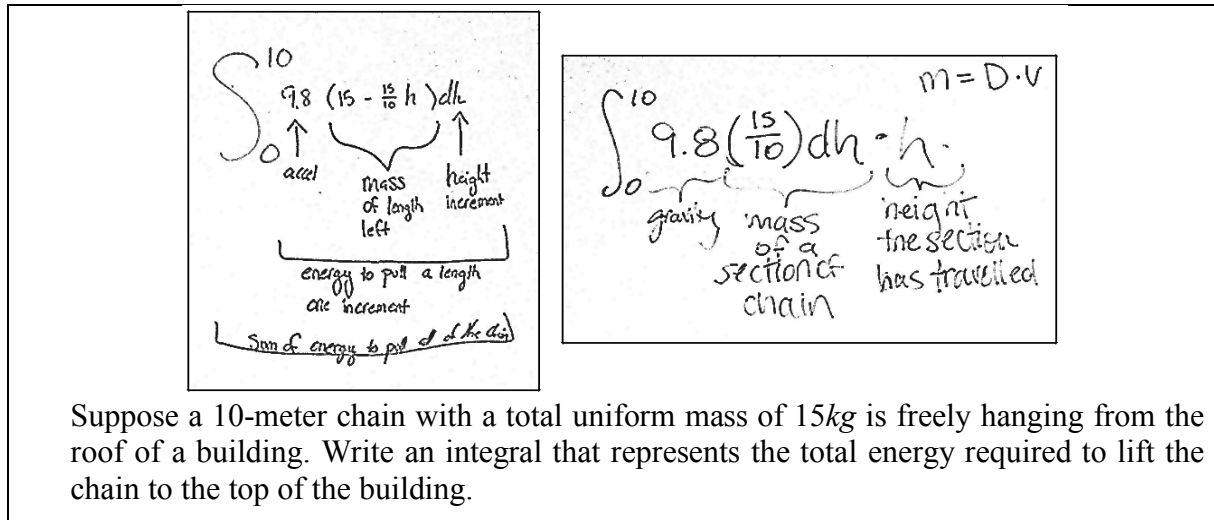 ∫₀¹⁰ 9.8 (15 - 15/10 h) dh
accel
mass
of length
left
height
increment
energy to pull a length
one increment
Sum of energy to pull all of the chain
m = D·V
∫₀¹⁰ 9.8 (15/10) dh · h
gravity
mass
of a
section of
chain
height
the section
has travelled
Suppose a 10-meter chain with a total uniform mass of 15kg is freely hanging from the
roof of a building. Write an integral that represents the total energy required to lift the
chain to the top of the building.